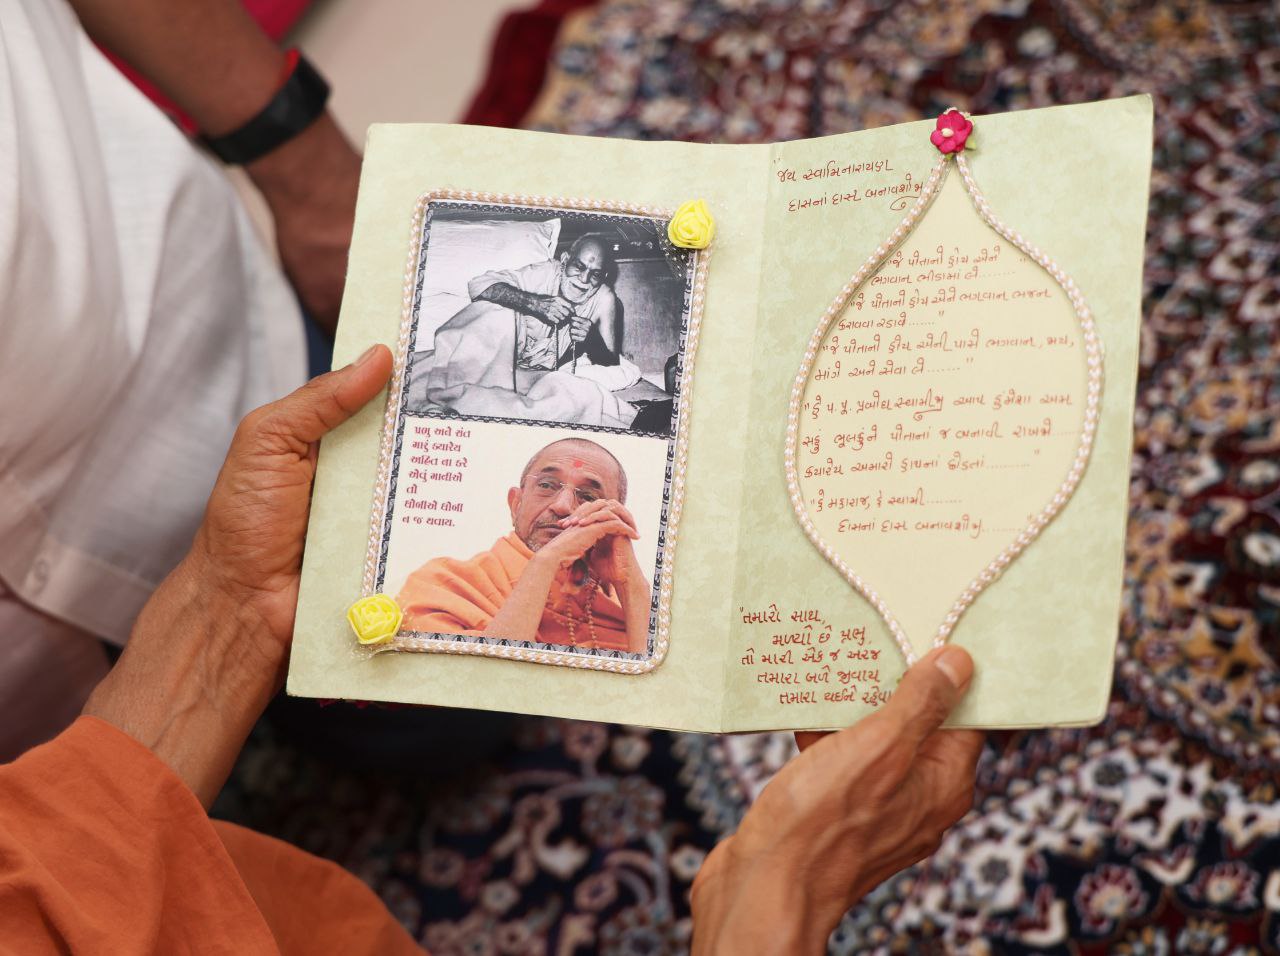 પ્રભુ અને સંત
મારું ક્યારેય
અહિત ના કરે
એવું માનીએ
તો
ધોનીએ ધોના
ન જ થવાય.
"જય સ્વામિનારાયણ
દાસનાં દાસ બનાવશોજી
"જે પોતાની હોય એને
ભગવાન ભીડામાં લે........"
"જે પોતાની હોય એને ભગવાન ભજન
કરાવવા રડાવે......"
"જે પોતાની હોય એની પાસે ભગવાન,
માંગે અને સેવા લે......."
"હે પ. પૂ. પ્રબોધ સ્વામીજી આપ હંમેશા અમ
સહું ભૂલકુંને પોતાનાં જ બનાવી રાખજો......
ક્યારેય અમારો હાથનાં છોડતાં.........."
"હે મહારાજ, હે સ્વામી........
દાસનાં દાસ બનાવશોજી......."
"તમારો સાથ,
મળ્યો છે પ્રભુ,
તો મારી એક જ અરજ
તમારા બળે જીવાય
તમારા થઈને રહેવા